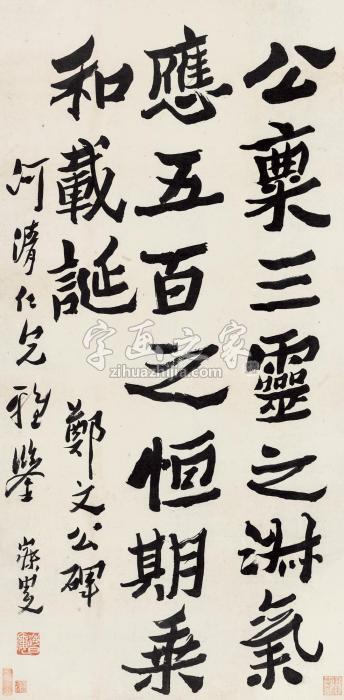 公稟三靈之淋氣
應五百之恒期乗
和載誕
鄭文公碑
河清仁兄雅鑒
寐叟
字画之家
zihuazhijia.com